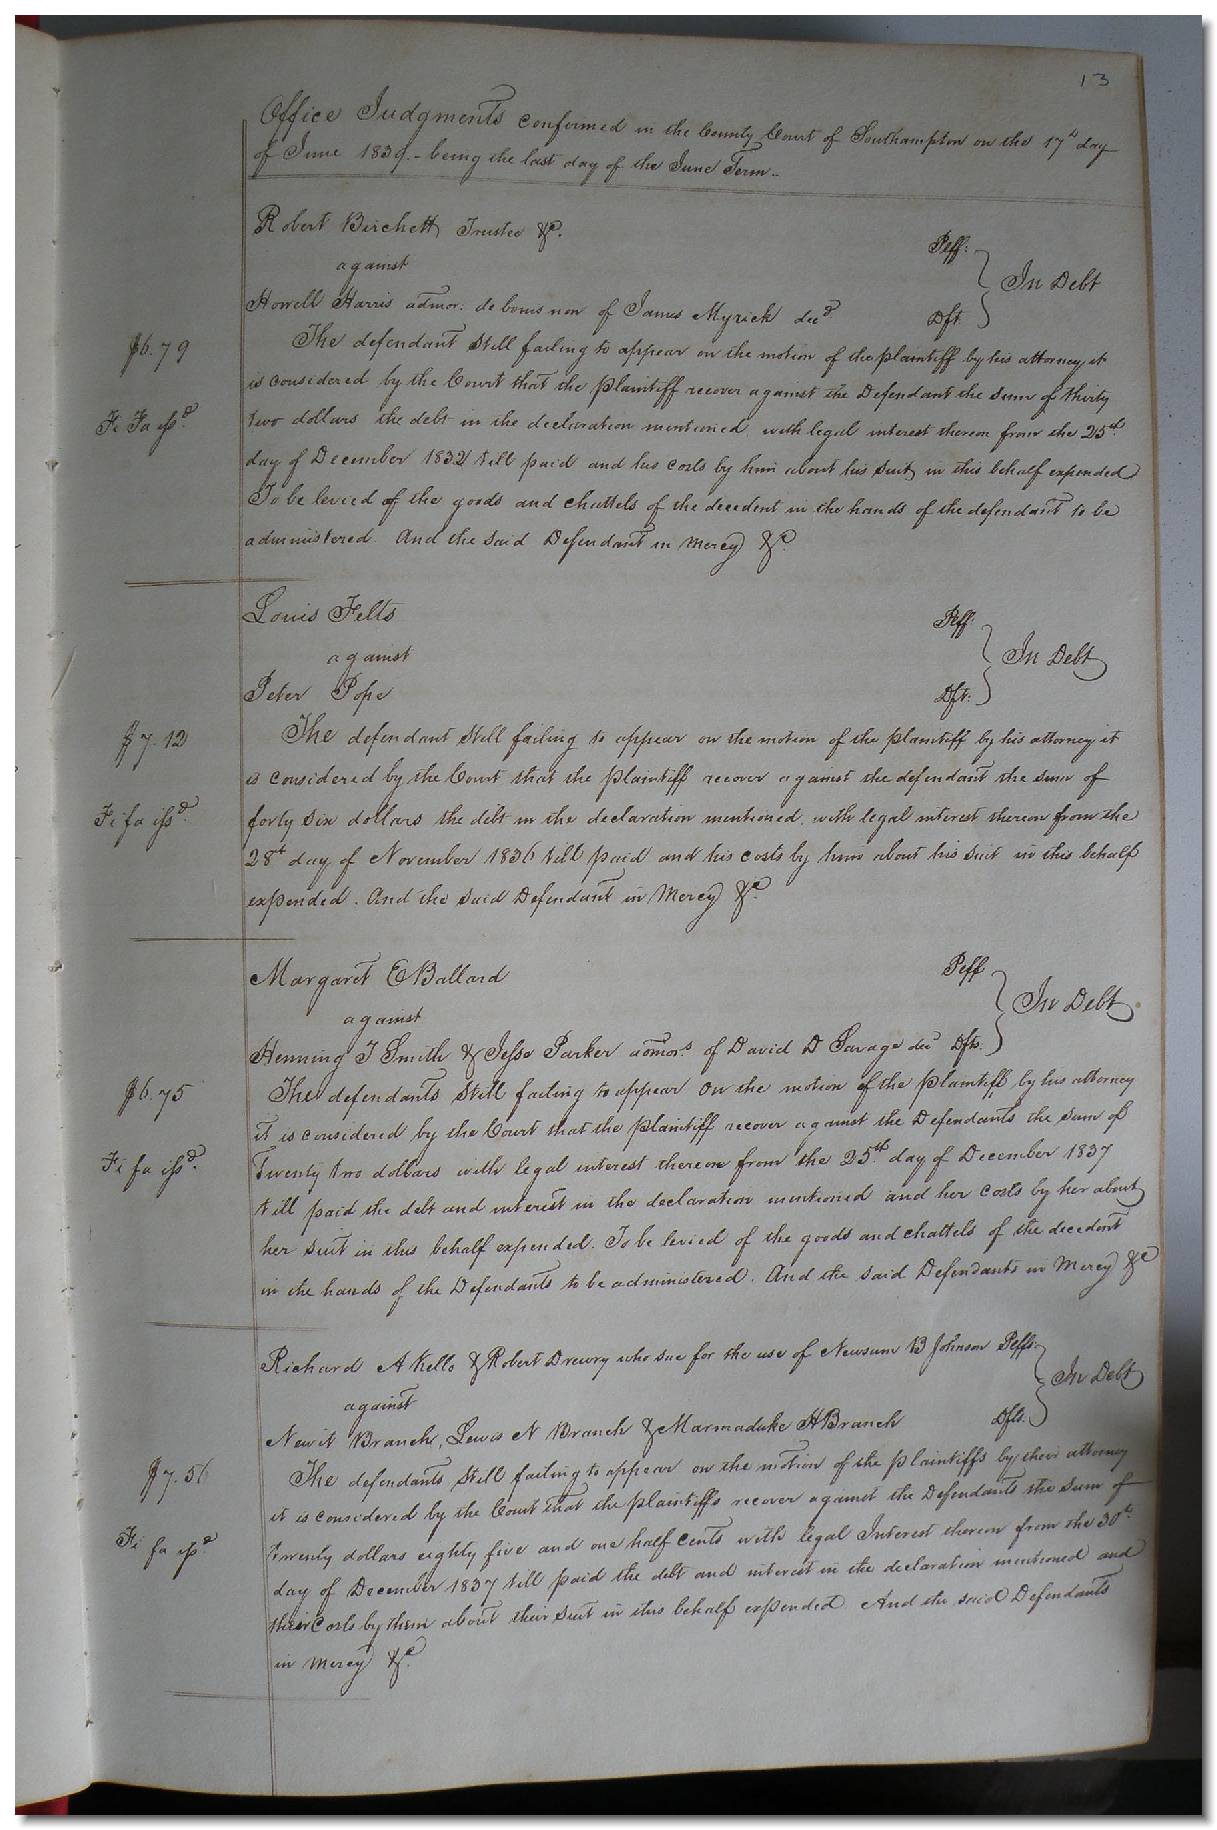 13
Office Judgments confirmed in the County Court of Southampton on the 17th day
of June 1839.- being the last day of the June Term-
Robert Birchett Trustee &c. Plff.
against In Debt
Howell Harris admor. de bonis non of James Myrick decd. Dft.
$6.79 The defendant still failing to appear on the motion of the plaintiff by his attorney it
is considered by the Court that the plaintiff recover against the Defendant the sum of thirty
Fi Fa issd. two dollars the debt in the declaration mentioned with legal interest thereon from the 25th
day of December 1832 till paid and his costs by him about his suit in this behalf expended
To be levied of the goods and chattels of the decedent in the hands of the defendant to be
administered. And the said Defendant in Mercy &c.
Louis Felts Plff.
against In Debt
Peter Pope Dft.
$7.12 The defendant still failing to appear on the motion of the plaintiff by his attorney it
is considered by the Court that the plaintiff recover against the defendant the sum of
Fi fa issd. forty six dollars the debt in the declaration mentioned. with legal interest thereon from the
28th day of November 1836 till paid and his costs by him about his suit in this behalf
expended. And the said Defendant in Mercy &c.
Margaret E Ballard Plff
against In Debt
Henning T Smith & Jesse Parker admors. of David D Savage dec Dfts.
$6.75 The defendants still failing to appear on the motion of the plaintiff by his attorney
it is considered by the Court that the plaintiff recover against the Defendants the sum of
Fi fa issd. Twenty two dollars with legal interest thereon from the 25th day of December 1837
till paid the debt and interest in the declaration mentioned and her costs by her about
her suit in this behalf expended. To be levied of the goods and chattels of the decedent
in the hands of the Defendants to be administered. And the said Defendants in Mercy &c
Richard A Kello & Robert Drewry who sue for the use of Newsum B Johnson Plffs.
against In Debt
Newit Branch, Lewis N Branch & Marmaduke H Branch Dfts.
$7.56 The defendants still failing to appear on the motion of the plaintiffs by their attorney
it is considered by the Court that the plaintiffs recover against the Defendants the sum of
Fi fa issd. twenty dollars eighty five and one half cents with legal Interest thereon from the 30th.
day of December 1837 till paid the debt and interest in the declaration mentioned and
their costs by them about their suit in this behalf expended And the said Defendants
in Mercy &c.